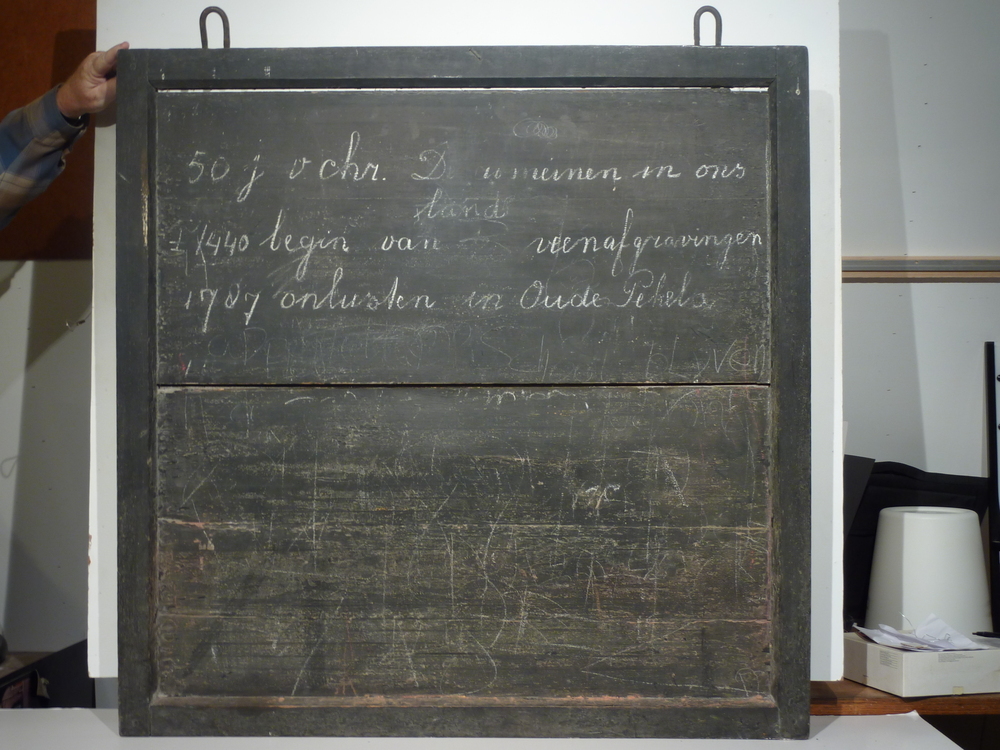 50 j v chr. De romeinen in ons
land
± 1440 begin van veenafgravingen
1787 onlusten in Oude Pekela